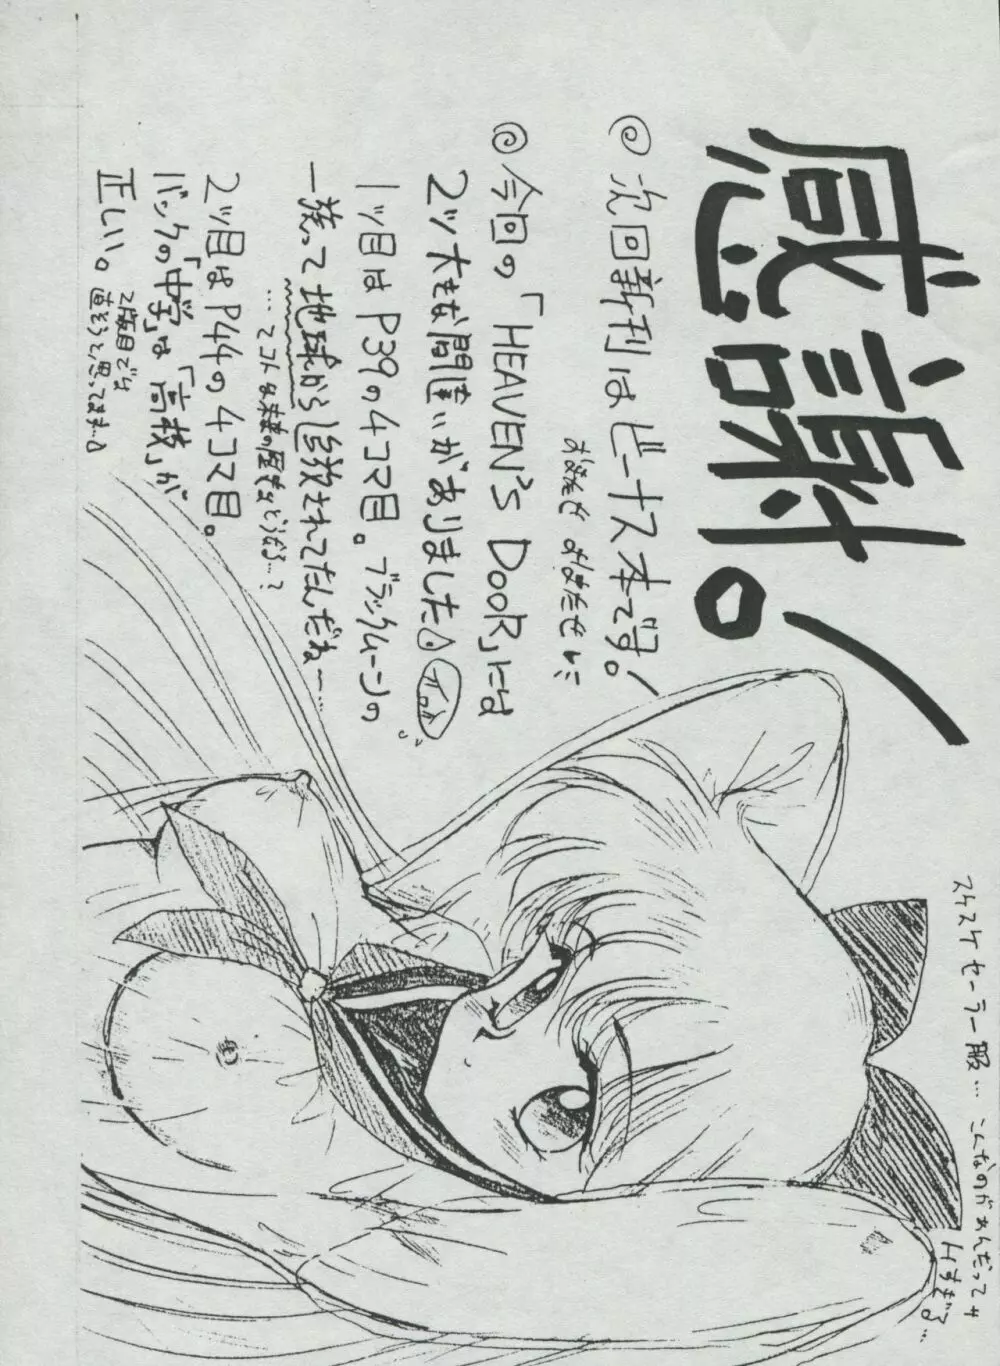 感謝。!
◎次回新刊はビーナス本です。!
おまたせ おまたせ
◎今回の「HEAVEN'S DOOR」には
2ツ大きな間違いがありました
1ツ目はP39の4コマ目。ブラックムーンの
一族って地球から追放されてたんだね〜…
2ツ目はP44の4コマ目。
バックの「中学」は「高校」が
正しい。
2版目では
直そうと思ってます…
スケスケセーラー服… こんなのがあんだってサ
Hすぎる…